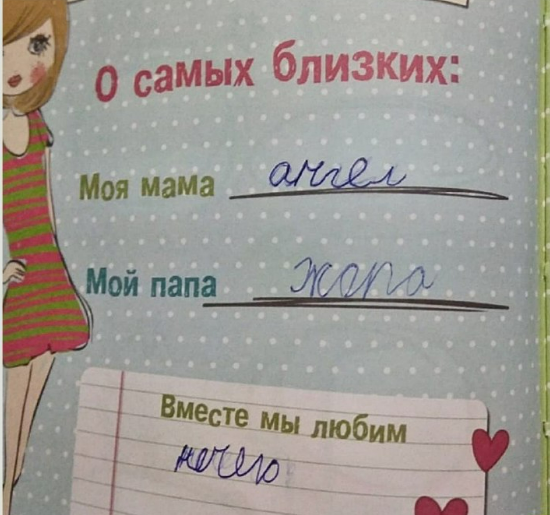 О самых близких:
Моя мама ангел
Мой папа жопа
Вместе мы любим
нечего